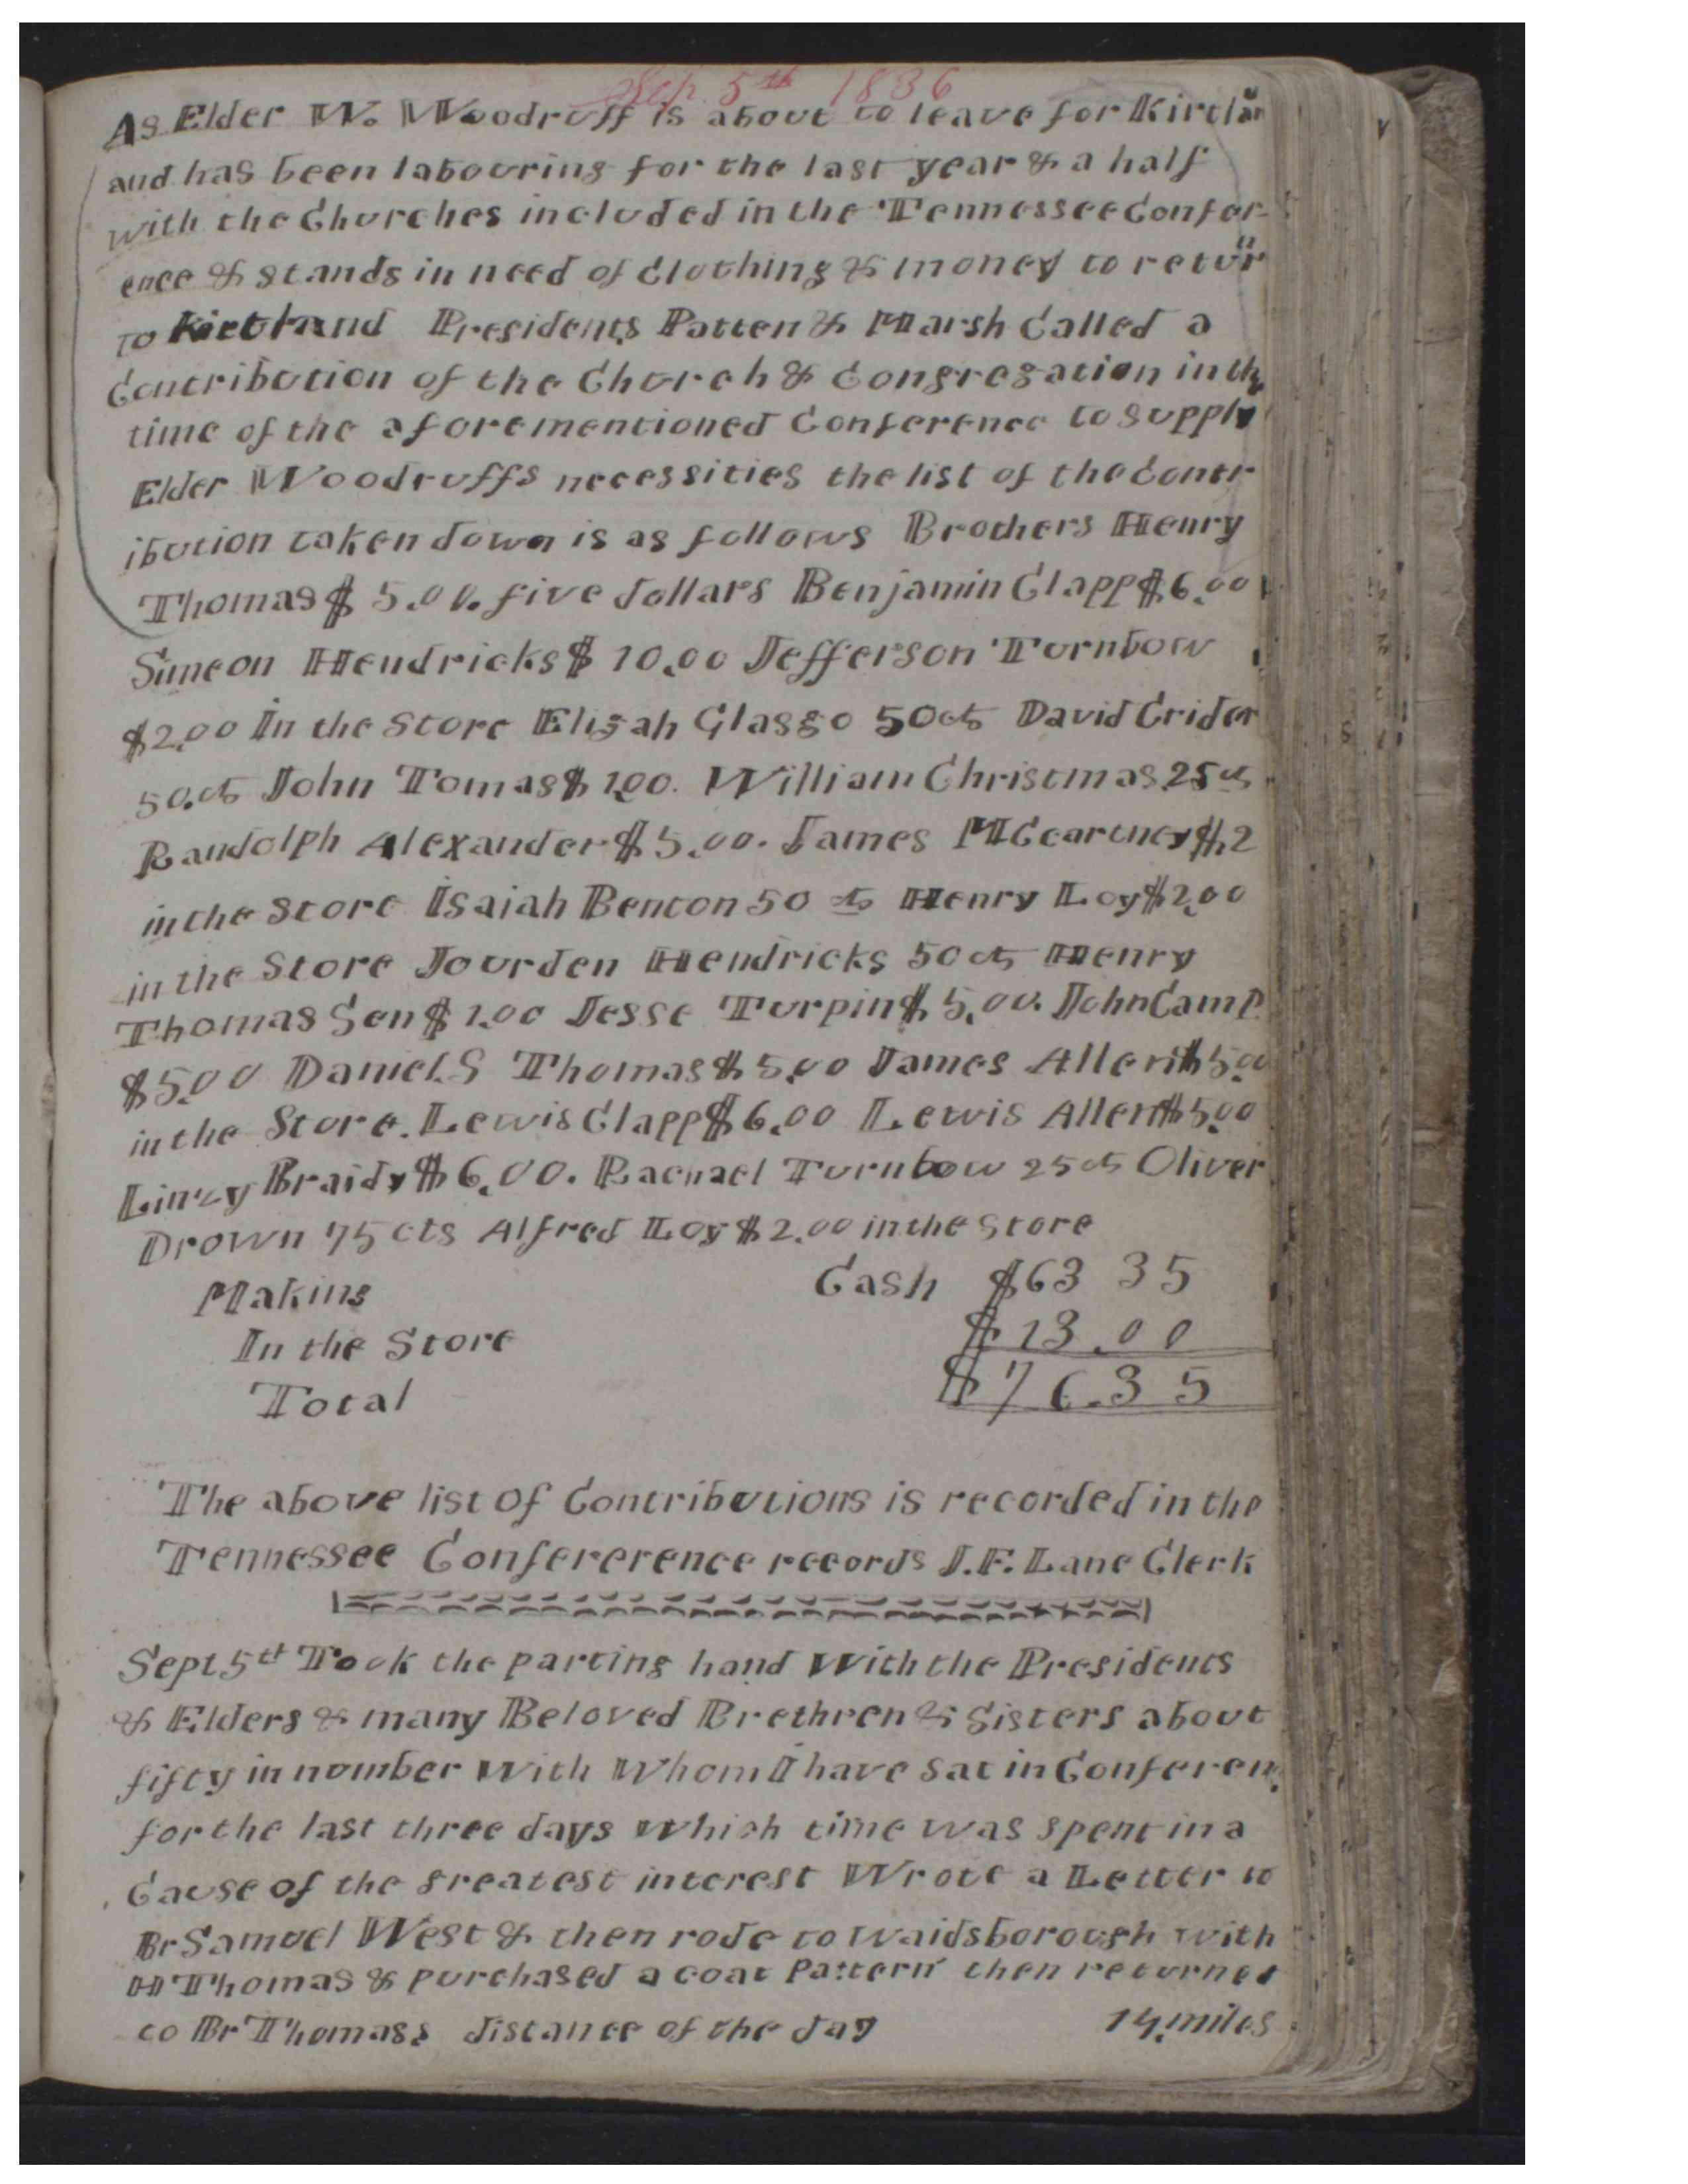 Sep. 5th 1836
As Elder W. Woodruff is about to leave for Kirtlan
and has been labouring for the last year & a half
with the Churches included in the Tennessee Confer-
ence & stands in need of Clothing & money to retur
to Kirtland Presidents Patten & Marsh Called a
Contribution of the Church & Congregation in the
time of the aforementioned Conference to supply
Elder Woodruffs necessities the list of the Contr-
ibution taken down is as follows Brothers Henry
Thomas $ 5.00. five dollars Benjamin Clapp $6.00
Simeon Hendricks $ 10.00 Jefferson Turnbow
$2.00 In the Store Eligah Glasgo 50 cts David Crider
50. cts John Tomas $ 1.00. William Christmas 25 cts
Randolph Alexander $5.00. James McCartney $.2
in the Store Isaiah Benton 50 cts Henry Loy $2.00
in the Store Jourden Hendricks 50 cts Henry
Thomas Sen $ 1.00 Jesse Turpin $ 5.00. John Camp
$5.00 Daniel. S Thomas $ 5.00 James Allen $5.00
in the Store. Lewis Clapp $6.00 Lewis Allen $5.00
Linzy Braidy $6.00. Rachael Turnbow 25 cts Oliver
Drown 75 cts Alfred Loy $2.00 in the Store
Making Cash $63 35
In the Store $13.00
Total $76.35
The above list of Contributions is recorded in the
Tennessee Confererence records J.F. Lane Clerk
Sept 5th Took the parting hand With the Presidents
& Elders & many Beloved Brethren & Sisters about
fifty in number With Whom I have Sat in Conferen
for the last three days Which time was spent in a
Cause of the greatest interest Wrote a Letter to
Br Samuel West & then rode to Waidsborough with
H Thomas & purchased a coat Pattern then returned
to Br Thomass distance of the day 14. miles